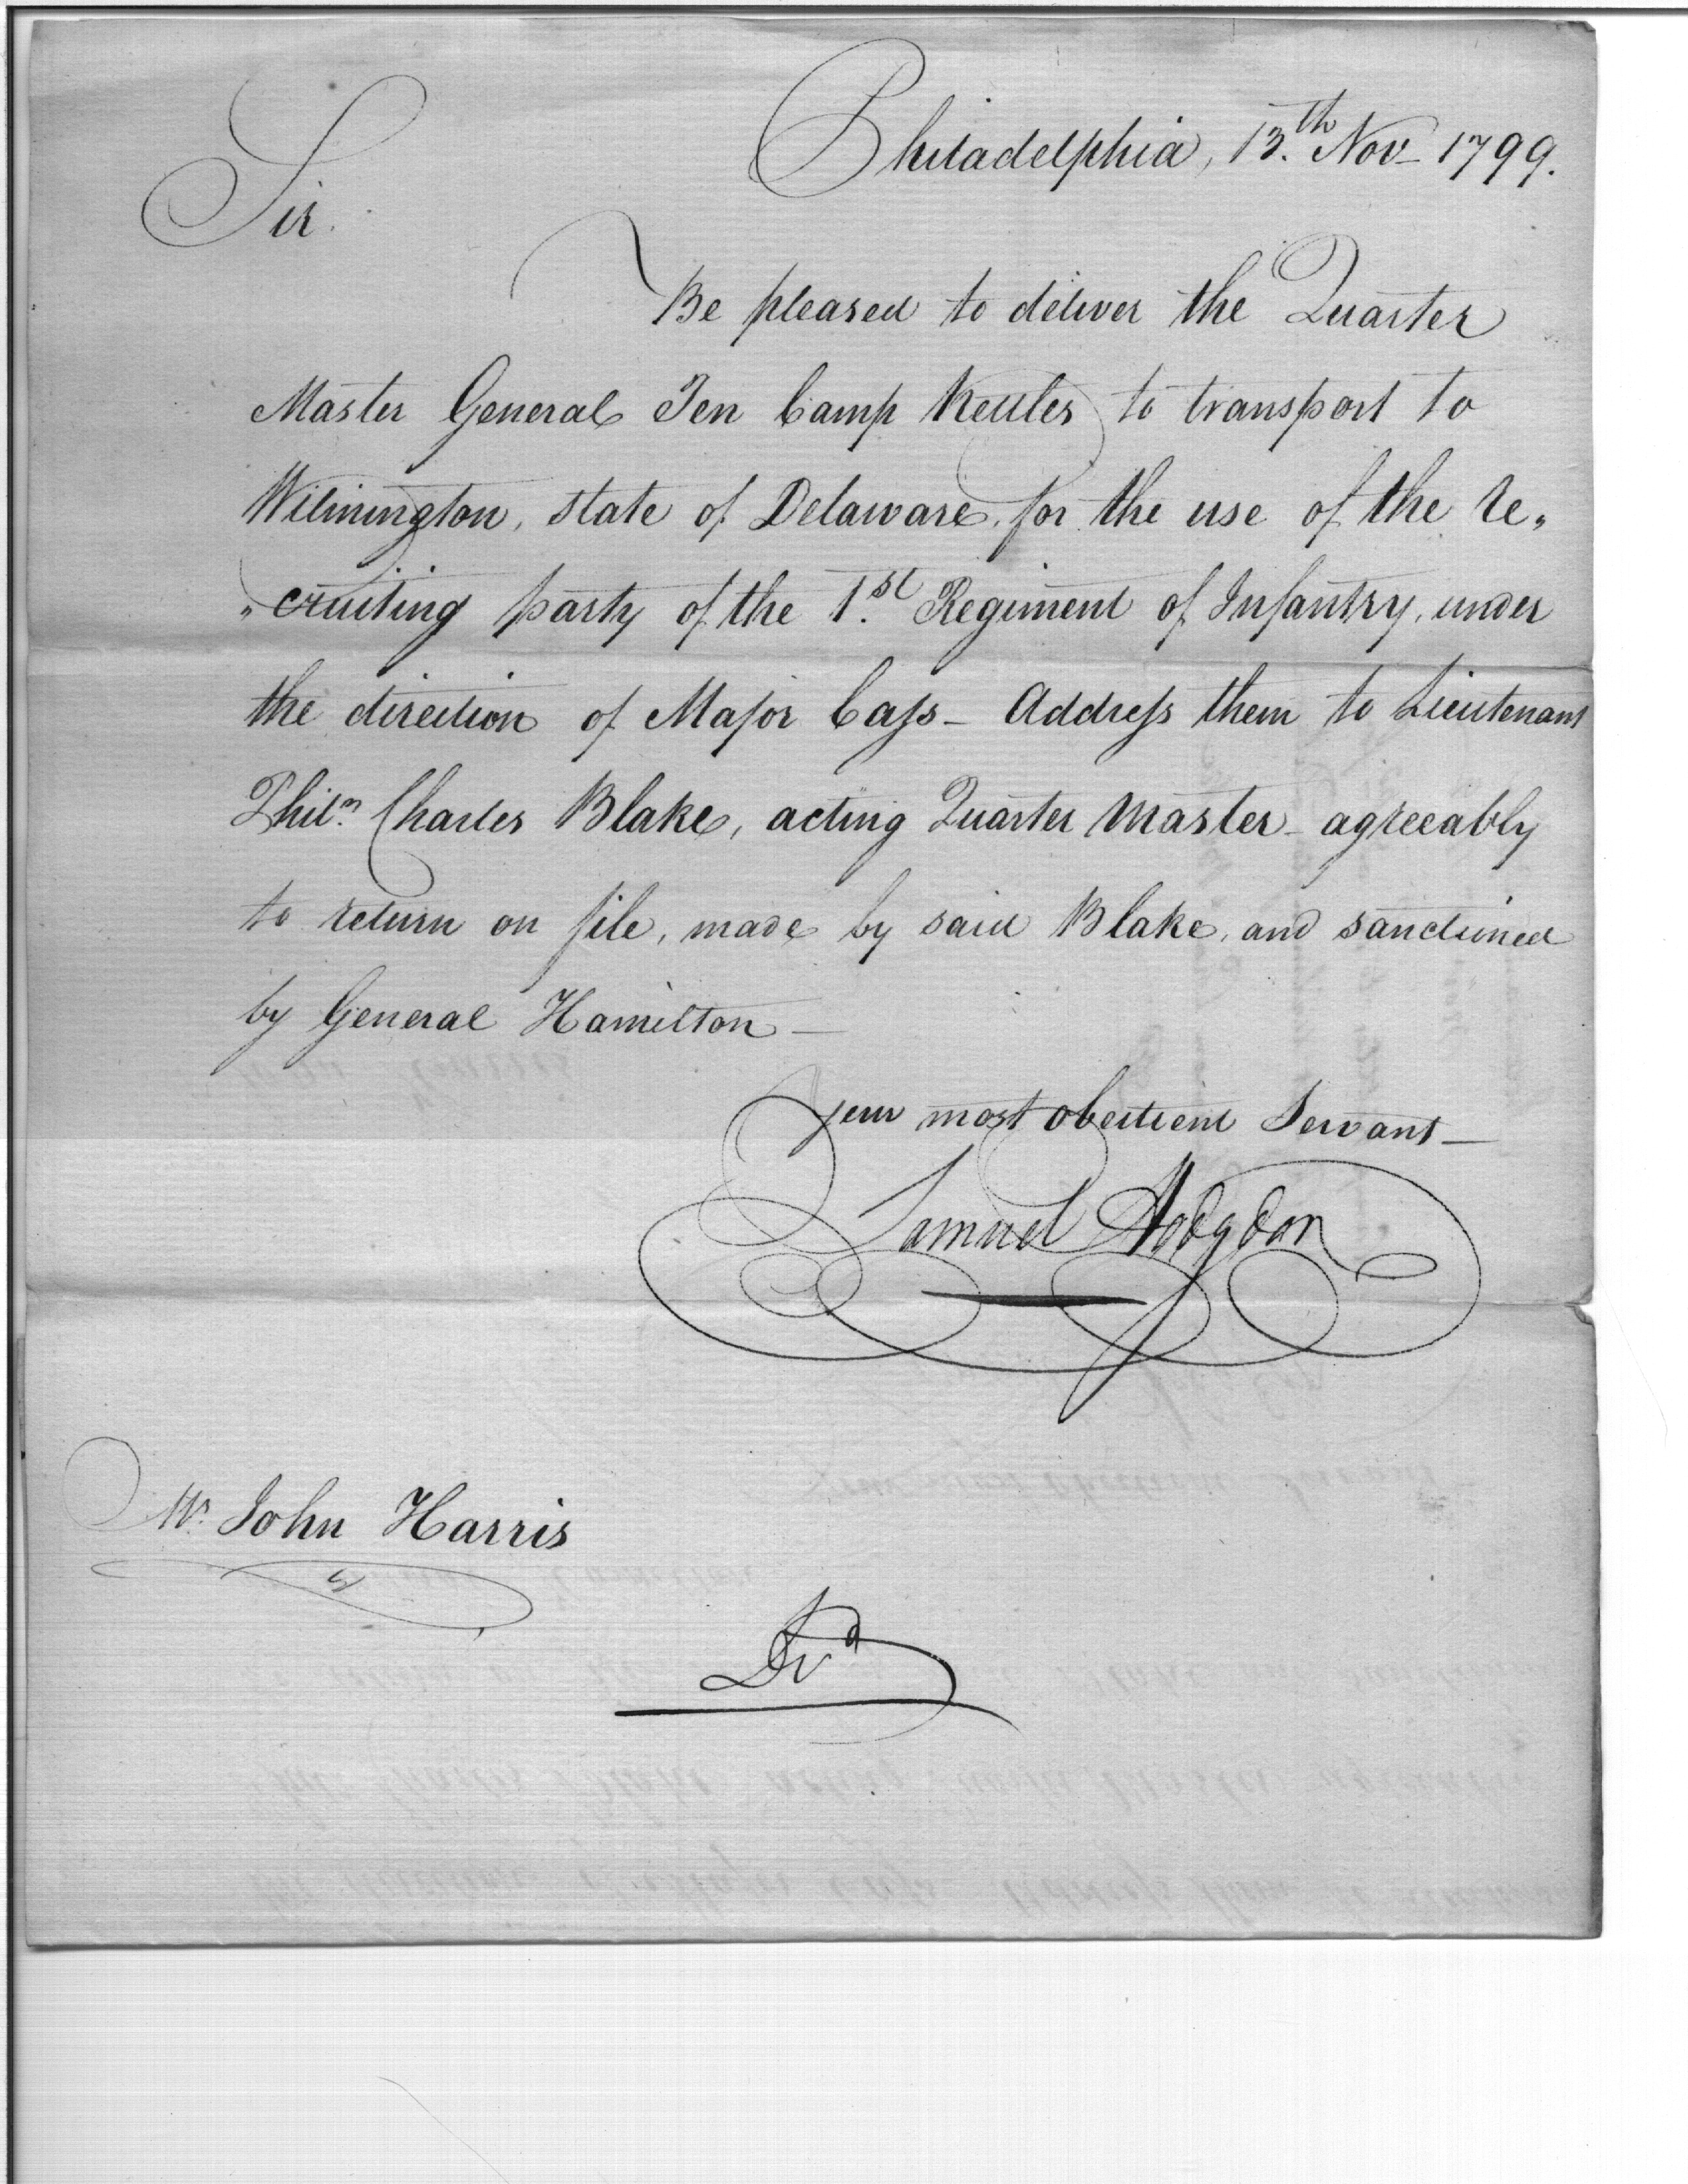 Philadelphia, 13.th Nov_ 1799.
Sir.
Be pleased to deliver the Quarter
Master General Ten Camp Kettles to transport to
Wilmington, state of Delaware, for the use of the re„
„cruiting party of the 1.st Regiment of Infantry, under
the direction of Major Cass_ Address them to Lieutenant
Phil.n Charles Blake, acting Quarter Master_ agreeably
to return on file, made by said Blake, and sanctioned
by General Hamilton_
Your most obedient Servant_
Samuel Hodgdon
Mr. John Harris